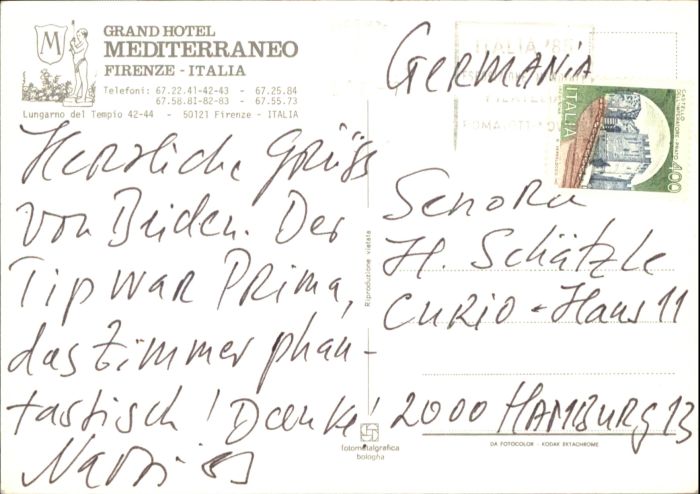 M
GRAND HOTEL
MEDITERRANEO
FIRENZE - ITALIA
Telefoni: 67.22.41-42-43 - 67.25.84
67.58.81-82-83 - 67.55.73
Lungarno del Tempio 42-44 - 50121 Firenze - ITALIA
Herzliche Grüße
von Beiden. Der
Tip war Prima,
das Zimmer phan-
tastisch! Danke!
Riproduzione vietata
fotometalgrafica
bologna
ITALIA '85
GERMANIA
CASTELLO
ITALIA
400
Senora
H. Schätzle
CURIO-Haus 11
2000 HAMBURG 13
DA FOTOCOLOR - KODAK EKTACHROME